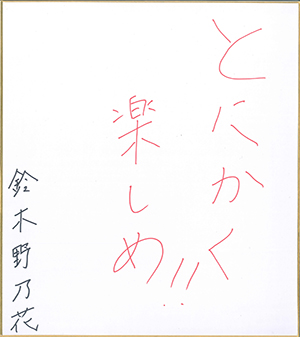 とにかく
楽しめ!!
鈴木野乃花